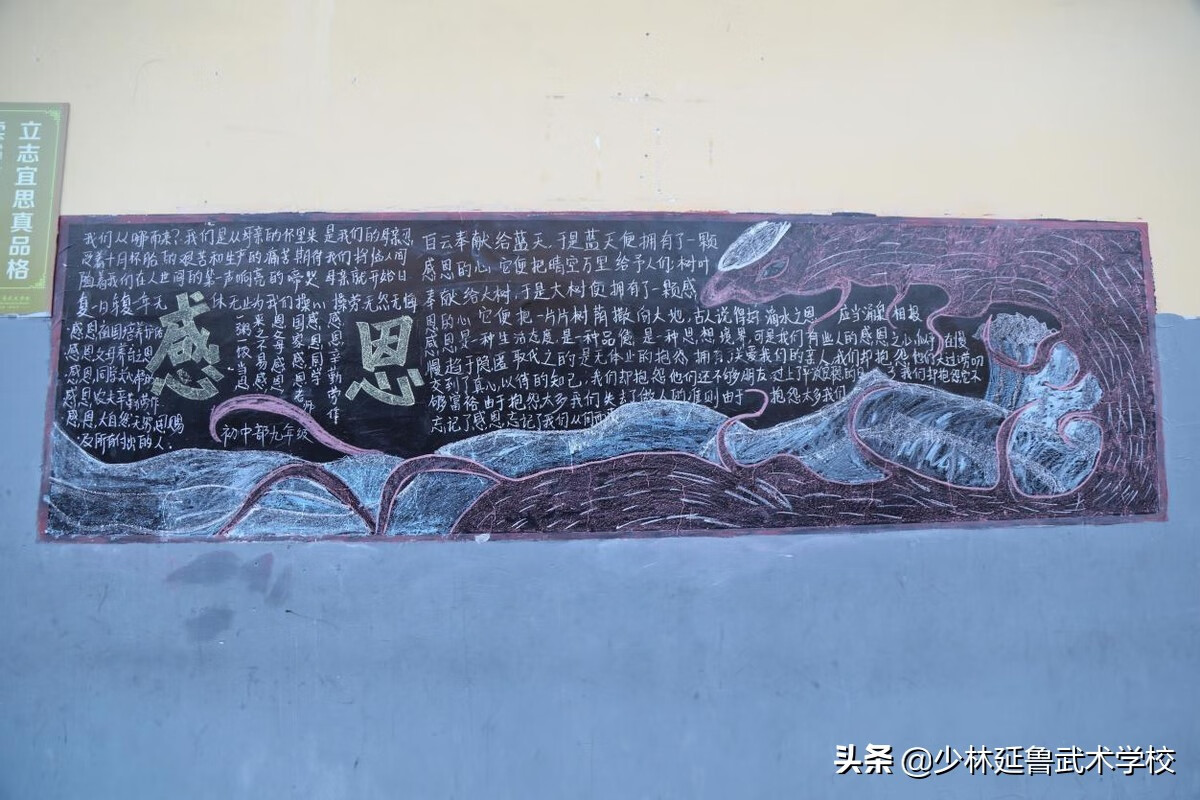 立志宜思真品格
我们从哪而来？我们是从母亲的怀里来是我们的母亲忍
受着十月怀胎的艰苦和生产的痛苦期待我们
我们在人世间的第一声响亮的啼哭母亲就开始日
复一日年复一年无休无止为我们操心操劳无怨无悔
感恩
感恩祖国培育
感恩父母养育之恩
感恩同学
感恩农夫辛勤劳作
感恩大自然
及所有付出的人。
一粥一饭当思
来之不易感
恩父母感恩
国家感恩老师
感恩同学
感恩辛勤劳作
初中部九年级
白云奉献给蓝天,于是蓝天便拥有了一颗
感恩的心,它便把晴空万里给予人们;树叶
奉献给大树,于是大树便拥有了一颗感
恩的心它便把一片片树荫撒向大地,古人说得好滴水之恩 应当涌泉相报
感恩是一种生活态度,是一种品德是一种思想境界可是我们有些人的感恩之心似乎在慢
慢趋于隐匿取代之的是无休止的抱怨拥有深爱我们的亲人我们却抱怨他们太过唠叨
交到了真心以待的知己,我们却抱怨他们还不够朋友过上了 的日子我们却抱怨它不
够富裕由于抱怨太多我们失去了做人的准则由于抱怨太多我们
忘记了感恩忘记了我们从何而来
头条 @少林延鲁武术学校